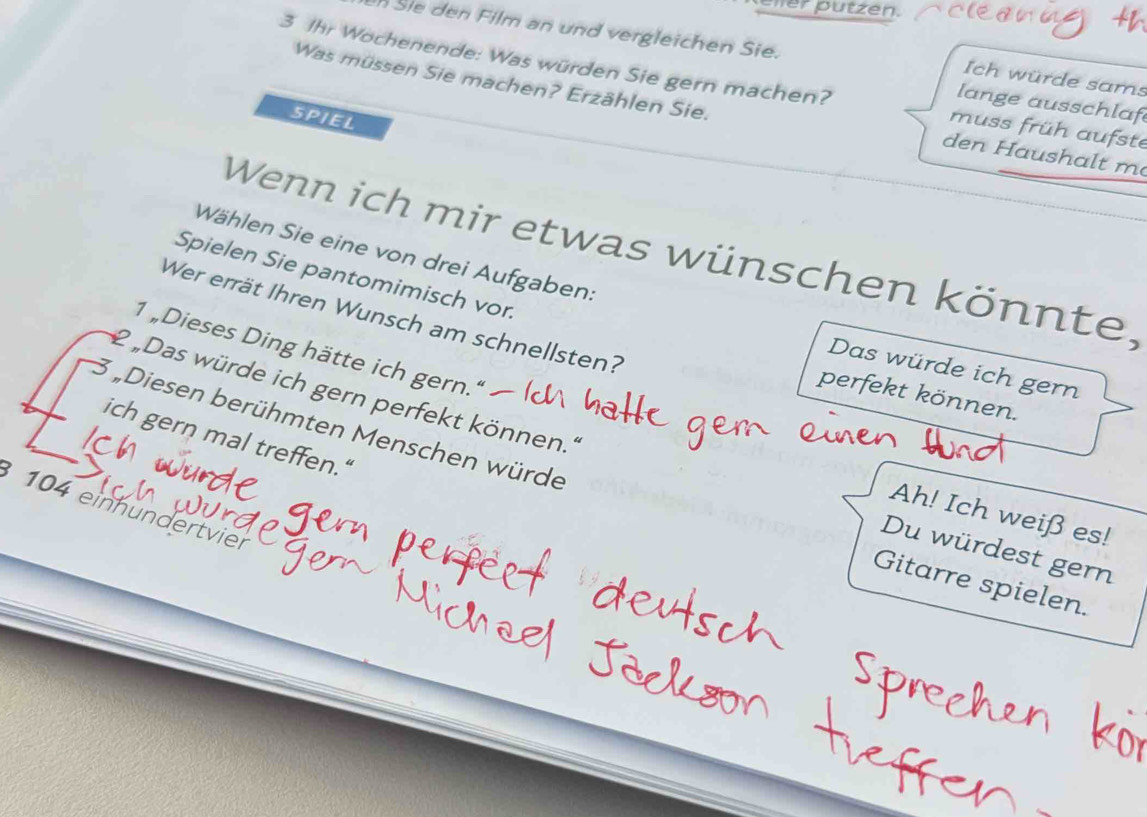 Sie den Film an und vergleichen Sie.
3 Ihr Wochenende: Was würden Sie gern machen?
Was müssen Sie machen? Erzählen Sie.
putzen. cleaning
Ich würde sams
lange ausschlafe
muss früh aufste
den Haushalt ma
SPIEL
Wenn ich mir etwas wünschen könnte,
Wählen Sie eine von drei Aufgaben:
Spielen Sie pantomimisch vor.
Wer errät Ihren Wunsch am schnellsten?
1 „Dieses Ding hätte ich gern.“ – Ich hatte gern einen Hund
2 „Das würde ich gern perfekt können.“
3 „Diesen berühmten Menschen würde
ich gern mal treffen.“
Das würde ich gern
perfekt können.
Ah! Ich weiß es!
Du würdest gern
Gitarre spielen.
Ich wurde gern perfect deutsch sprechen kön
ich wurde gern Michael Jackson treffen.
104 einhundertvier